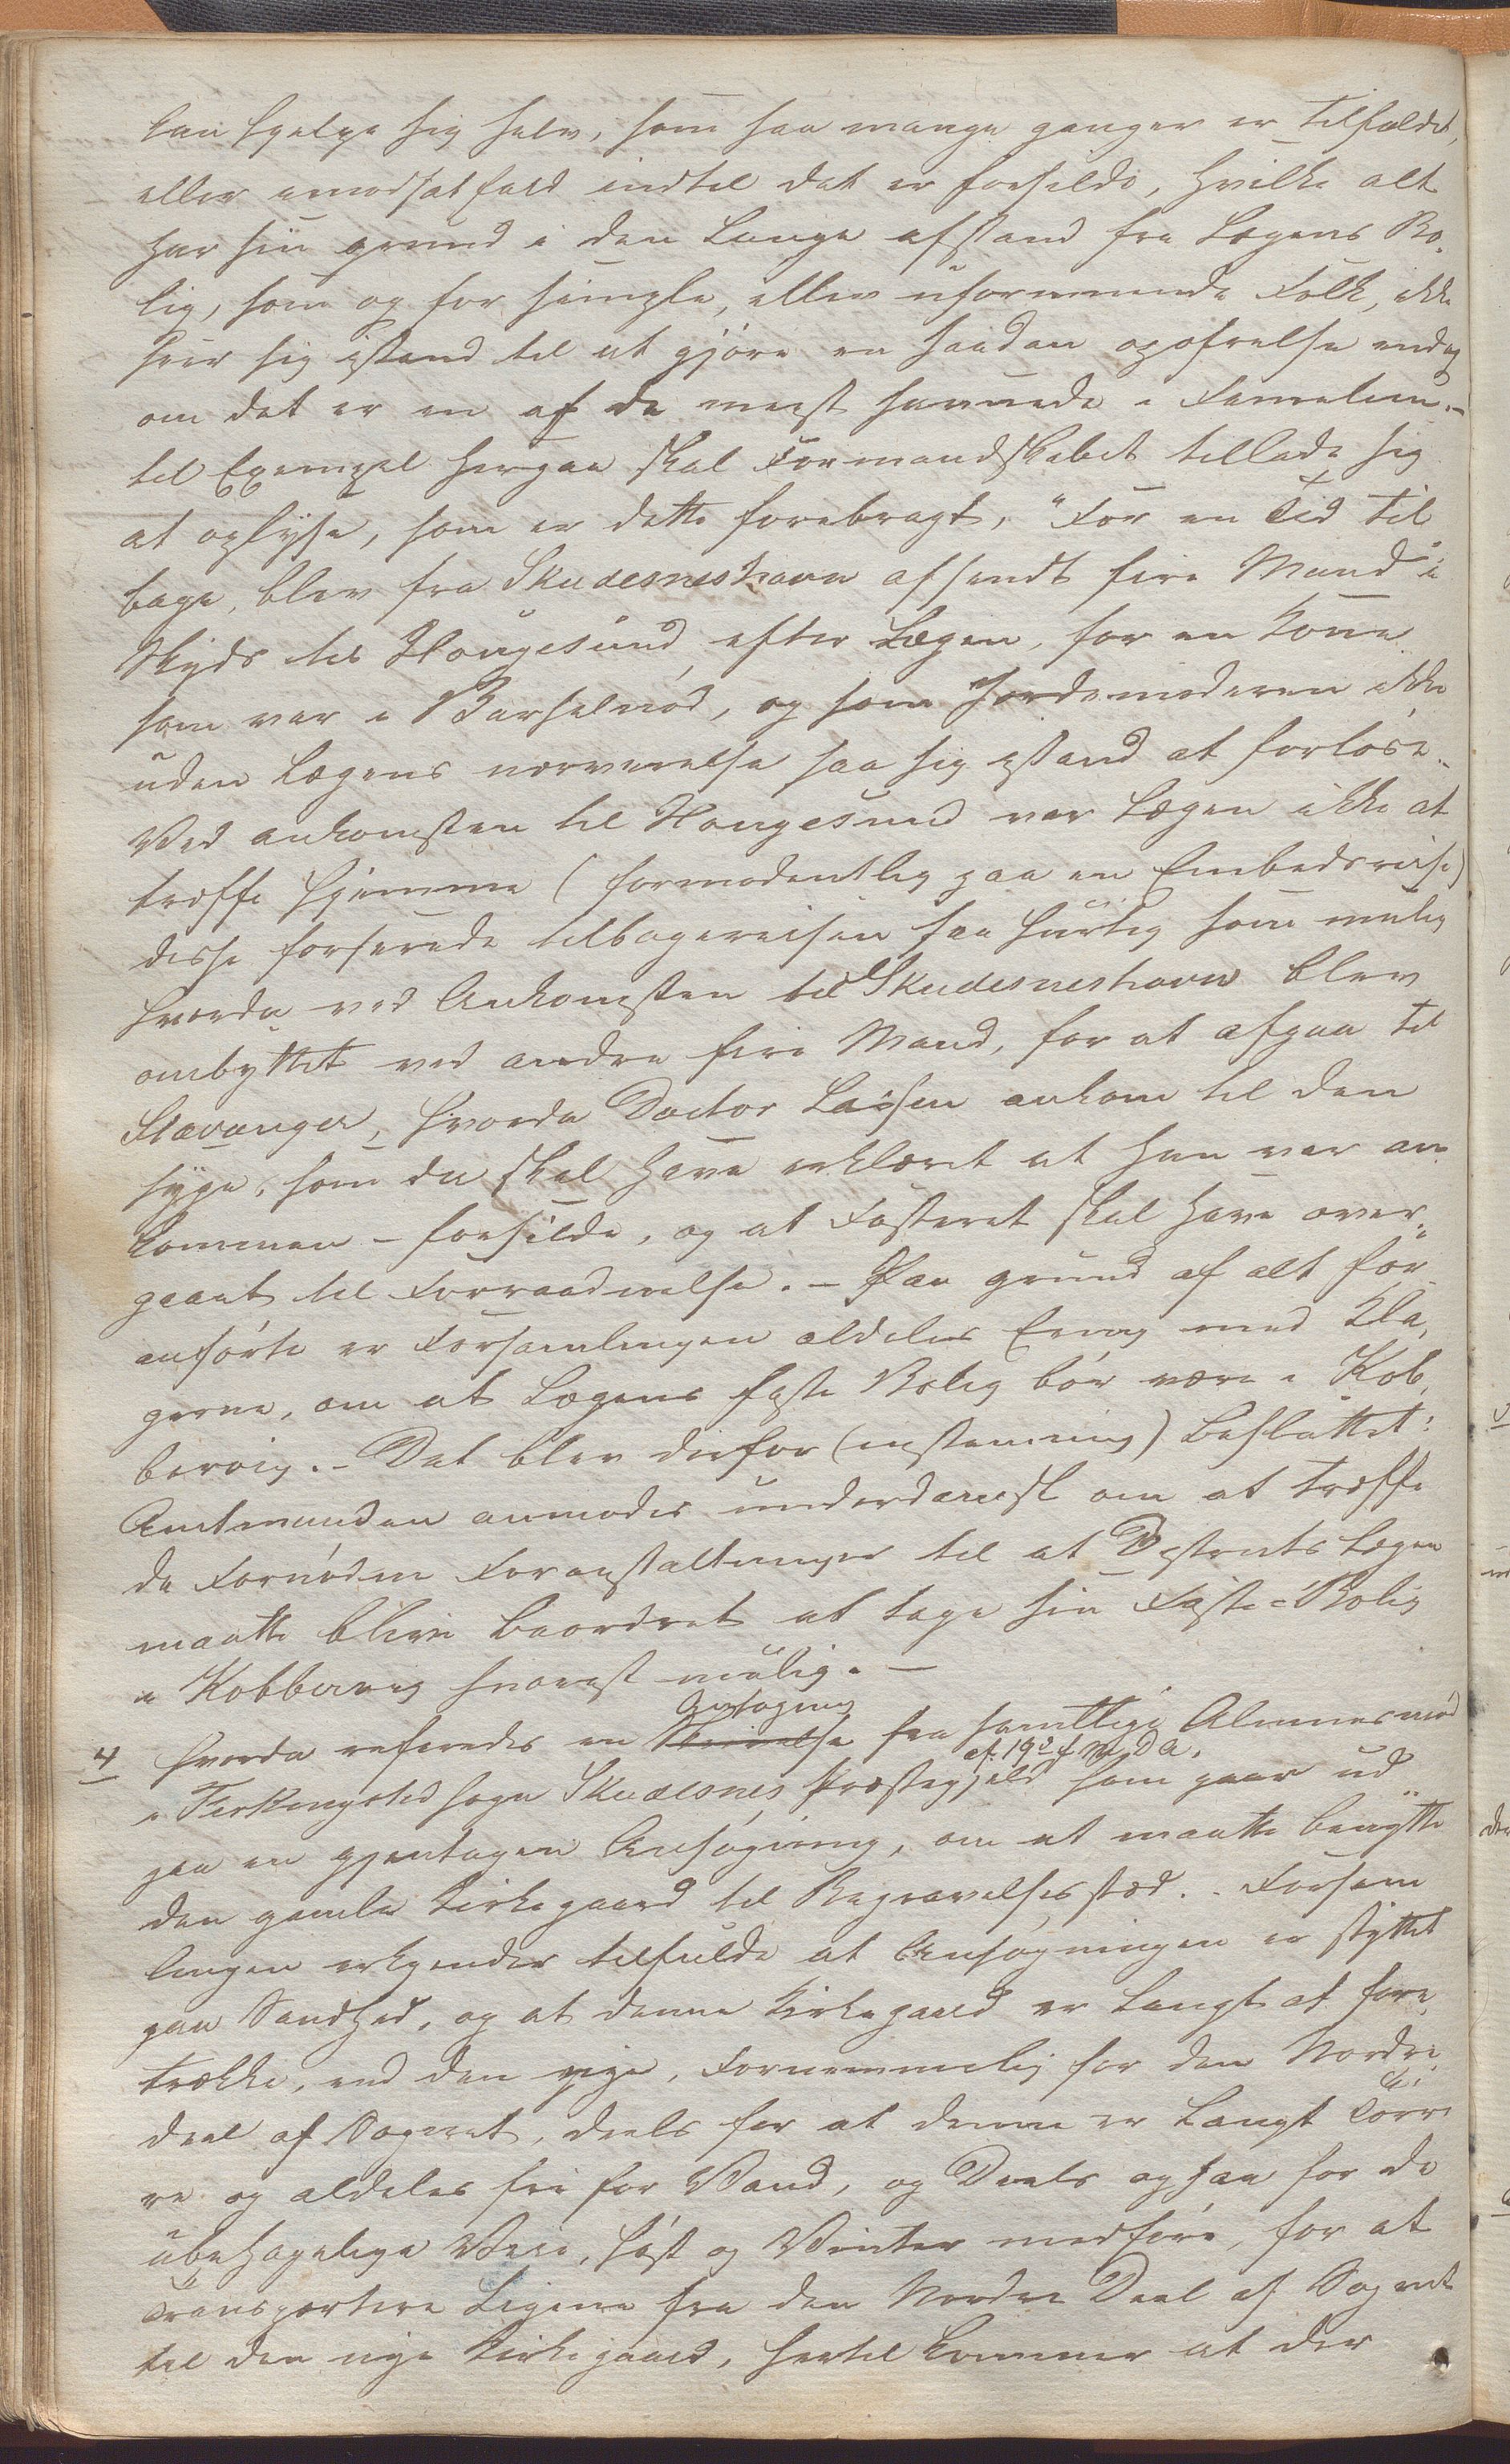 kan hjelpe sig selv, som saa mange ganger er tilfældet,
eller i modsat fald indtil det er forsilde, hvilke alt
har sin grund i den Lange afstand fra Lægens Bo-
lig, som og for simple, eller uformuende Folk, ikke
seer sig istand til at gjöre en saadan opofrelse endog
om det er en af de meest savnede i Familien.-
til Exempel herpaa skal Formandskabet tillade sig
at oplyse, som er dette forebragt, "For en Tid til
bage, blev fra Skudesneshavn afsendt fire Mand i
Skyds til Hougesund efter Lægen, for en Kone
som var i Barselnöd, og som Jordemoderen ikke
uden Lægens nærværelse saa sig istand at forlöse.-
Ved ankomsten til Hougesund var Lægen ikke at
træffe hjemme (formodentlig paa en Embedsreise)
disse forserede tilbagereisen saa hurtig som mulig
hvorda ved Ankomsten til Skudesneshavn blev
ombyttet ved andre fire Mand, for at afgaa til
Stavanger, hvorda Doctor Laisen ankom til den
syge, som da skal have erklæret at han var an-
kommen - forsilde, og at Fosteret skal have over-
gaaet til Forraadnelse. - Paa grund af alt for-
anförte er Forsamlingen aldeles Eenig med Kla-
gerne, om at Lægens faste Bolig bör være i Kob-
bervig. - Det blev derfor (enstemmig) Besluttet:
Amtmanden anmodes underdanigst om at træffe
de Fornödne Foranstaltninger til at Distrikts Lægen
maatte blive beordret at tage sin Faste-Bolig
i Kobbervig snarest mulig. -
4 Hvorda refereredes en Skrivelse Ansögning fra samtlige Almuesmænd
i Ferkingstad sogn Skudesnes Præstegjeld af 19de f. M. D. A. som gaar ud
paa en gjentagen Ansögning, om at maatte benytte
den gamle Kirkegaard til Begravelsessted. - Forsam
lingen erkjender tilfulde at Ansögningen er styttet
paa Sandhed, og at denne Kirkegaard er Langt at fore-
trække, end den nye, Fornemmelig for den Nordre
deel af Sognet, deels for at denne er Langt Törr-
re og aldeles fri for Vand, og Deels ogsaa for de
ubehagelige Veie, höst og Vinter medföre, for at
Transportere Ligene fra den Nordre Deel af Sognet
til den nye Kirkegaard, hertil kommer at der